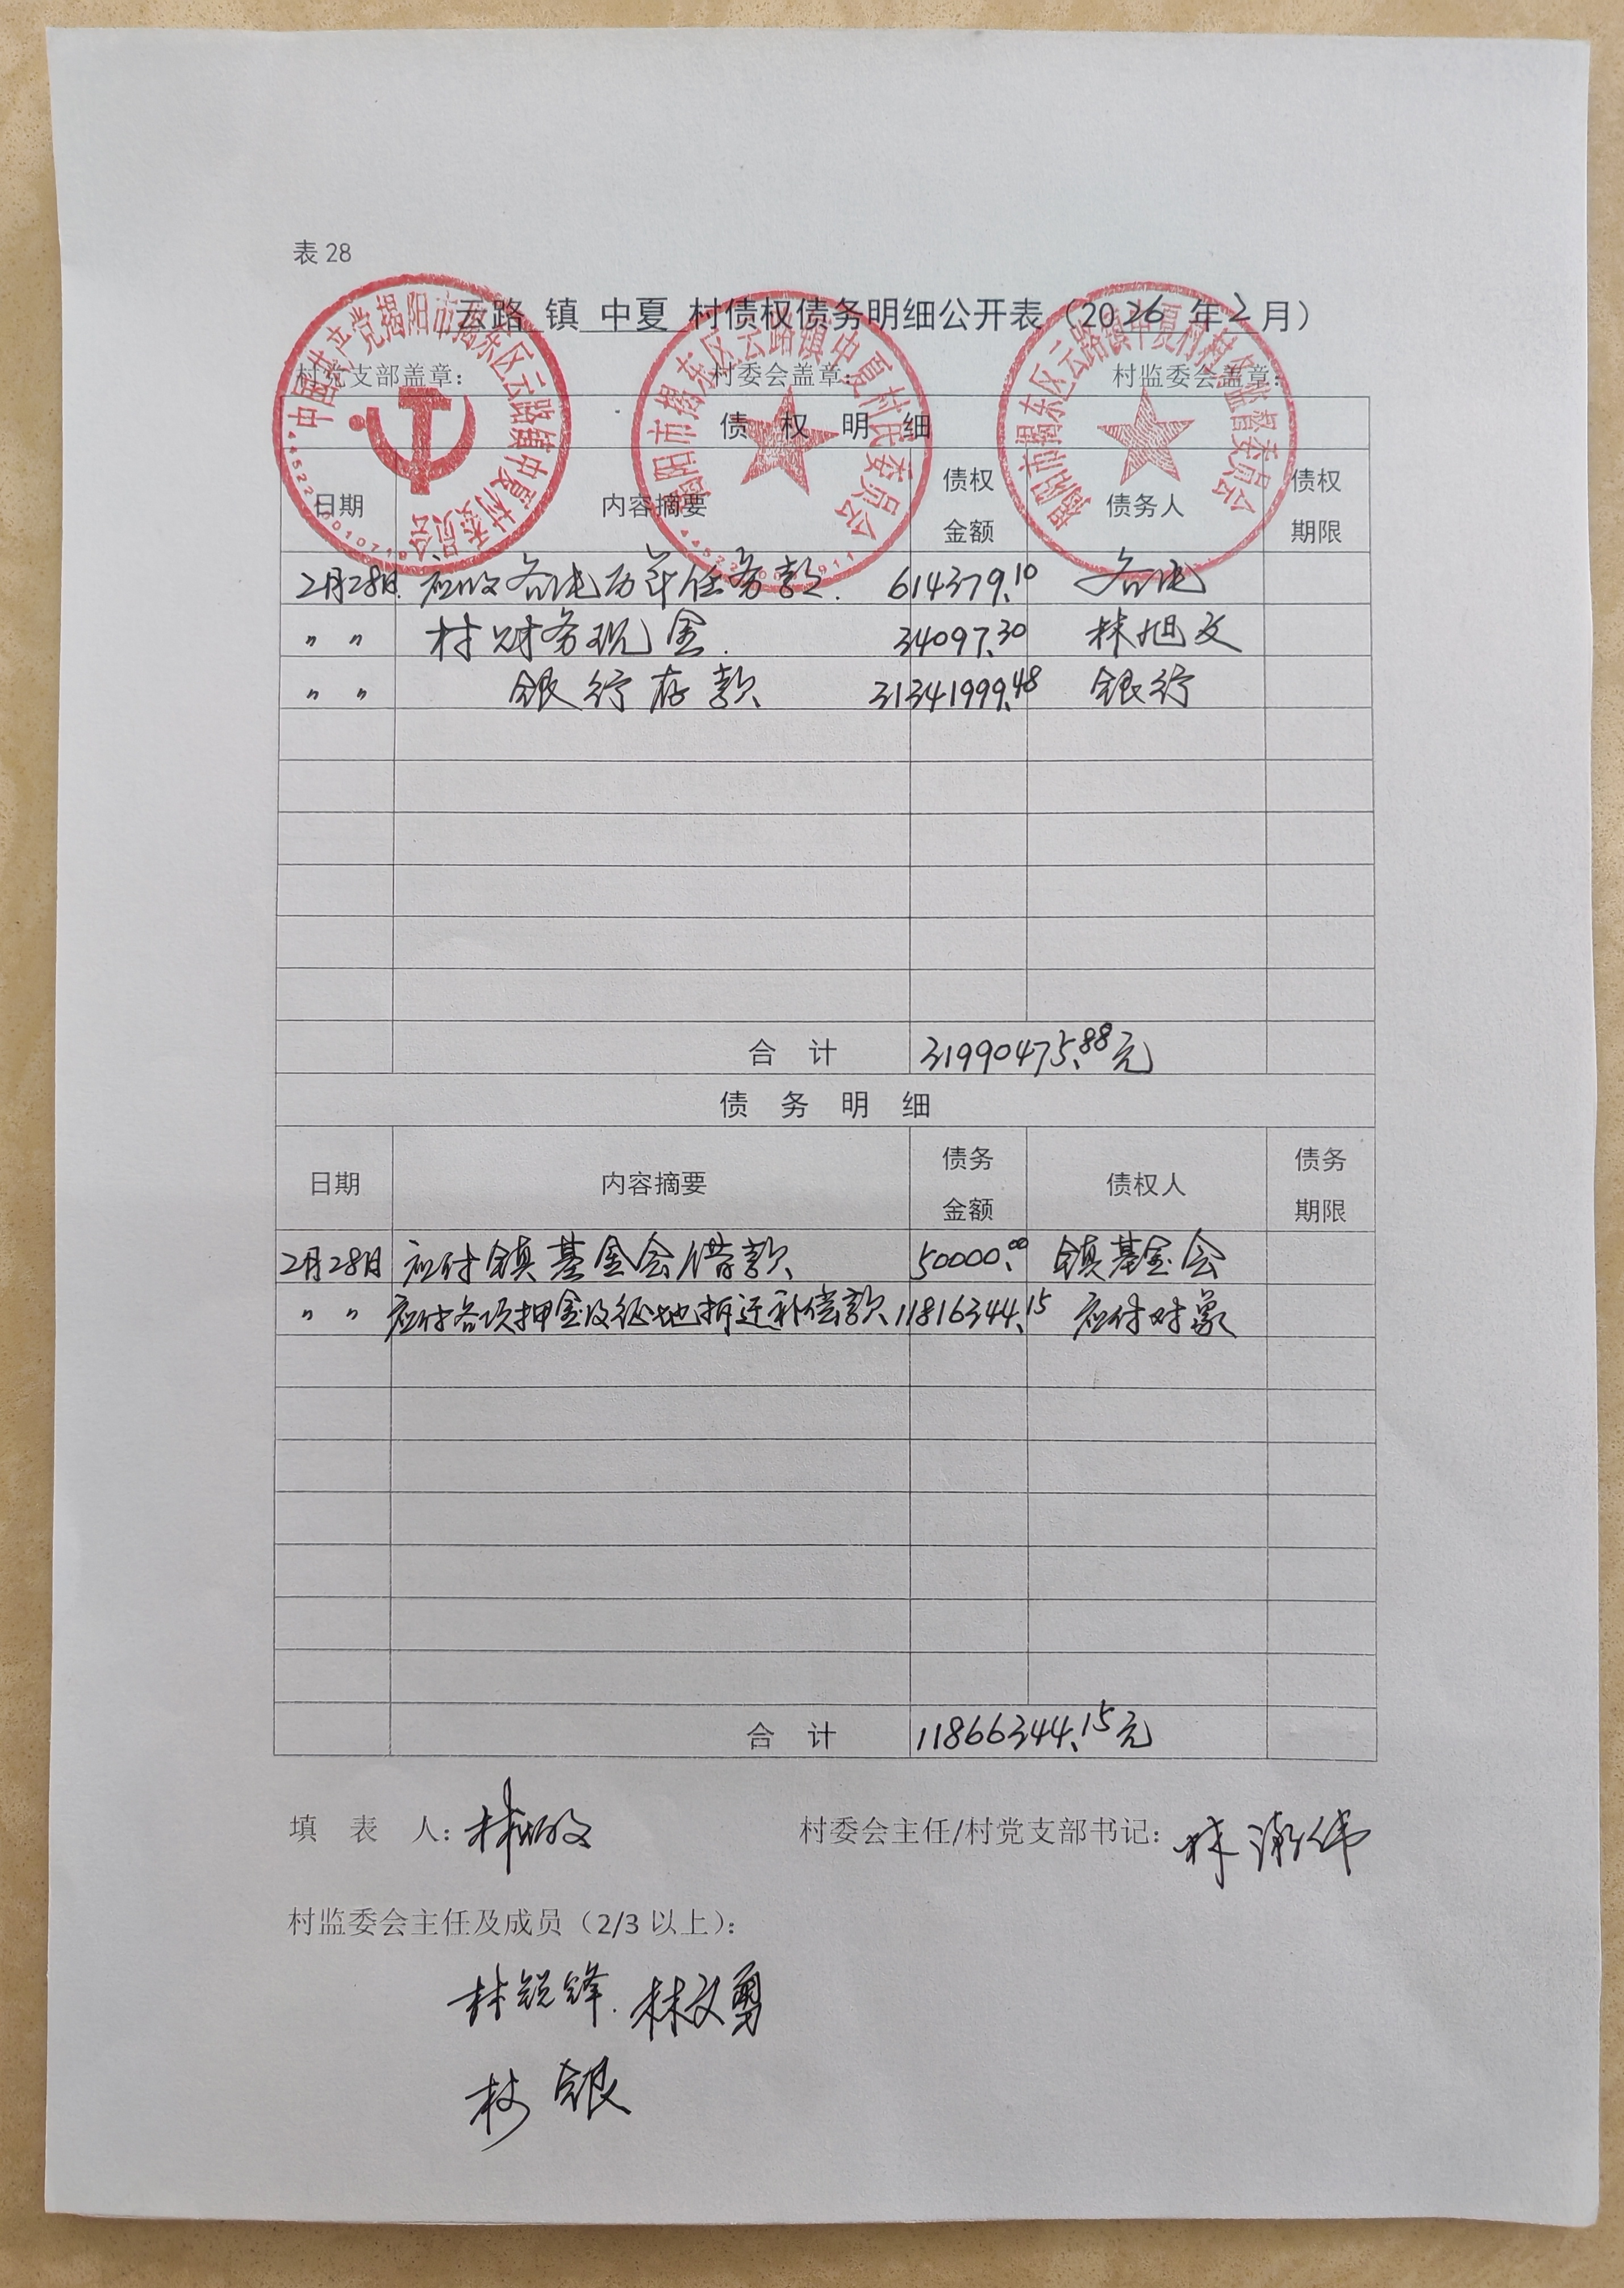 表 28
云路 镇 中夏 村债权债务明细公开表（2026 年2月）
村党支部盖章： 村委会盖章： 村监委会盖章：
债 权 明 细
日期 内容摘要 债权金额 债务人 债权期限
2月28日 应收各户历年任务款. 614379.10 各户
〃 〃 村财务现金. 34097.30 林旭文
〃 〃 银行存款 31341999.48 银行
合 计 31990475.88元
债 务 明 细
日期 内容摘要 债务金额 债权人 债务期限
2月28日 应付镇基金会借款 50000.00 镇基金会
〃 〃 应付各项押金及征地拆迁补偿款 11816344.15 应付对象
合 计 11866344.15元
填 表 人： 林 村委会主任/村党支部书记： 林 伟
村监委会主任及成员（2/3 以上）：
林锐锋. 林文勇
林 银
中国共产党揭阳市揭东区云路镇中夏村委员会
揭阳市揭东区云路镇中夏村民委员会
揭阳市揭东区云路镇中夏村村务监督委员会